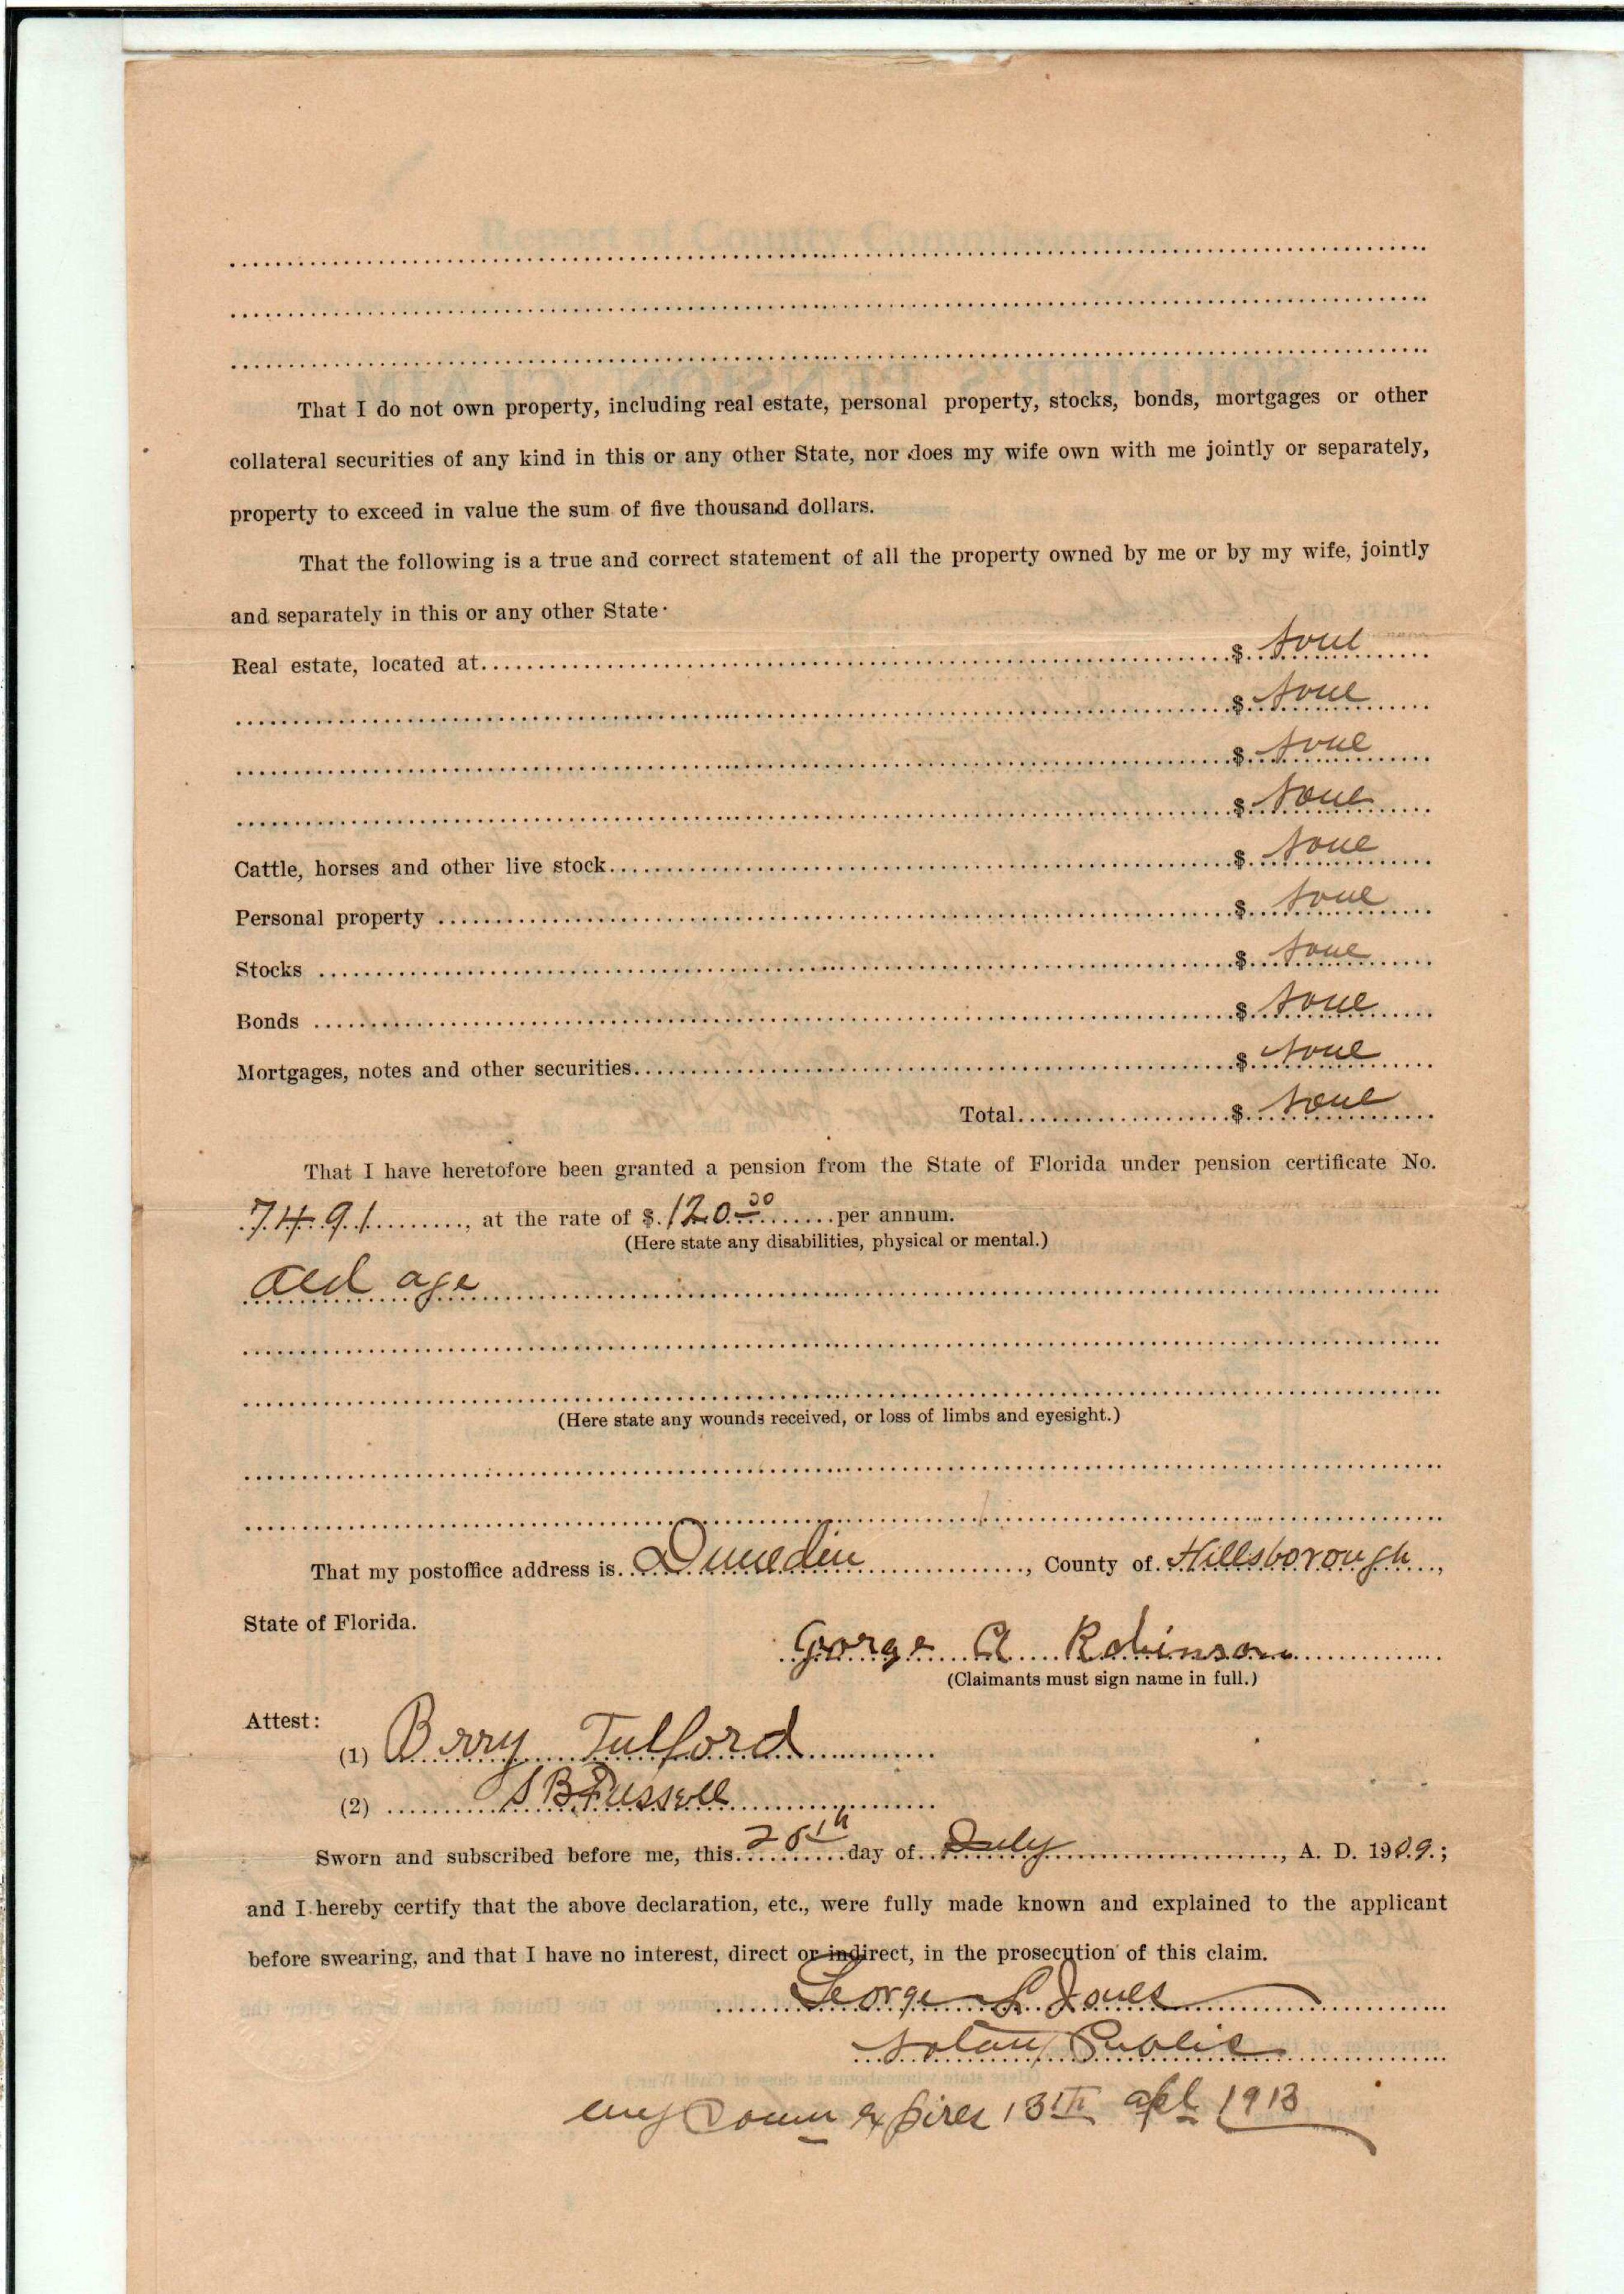 That I do not own property, including real estate, personal property, stocks, bonds, mortgages or other
collateral securities of any kind in this or any other State, nor does my wife own with me jointly or separately,
property to exceed in value the sum of five thousand dollars.
That the following is a true and correct statement of all the property owned by me or by my wife, jointly
and separately in this or any other State·
Real estate, located at $ None
$ None
$ None
$ None
Cattle, horses and other live stock $ None
Personal property $ None
Stocks $ None
Bonds $ None
Mortgages, notes and other securities $ None
Total $ None
That I have heretofore been granted a pension from the State of Florida under pension certificate No.
7491, at the rate of $ 120.00 per annum.
(Here state any disabilities, physical or mental.)
Old age
(Here state any wounds received, or loss of limbs and eyesight.)
That my postoffice address is Dunedin, County of Hillsborough,
State of Florida.
George A Robinson
(Claimants must sign name in full.)
Attest:
(1) Berry Tulford
(2) S B
Sworn and subscribed before me, this day of July, A. D. 1909.;
and I hereby certify that the above declaration, etc., were fully made known and explained to the applicant
before swearing, and that I have no interest, direct or indirect, in the prosecution of this claim.
George L Jones
Notary Public
my Comm expires 13th apl 1913